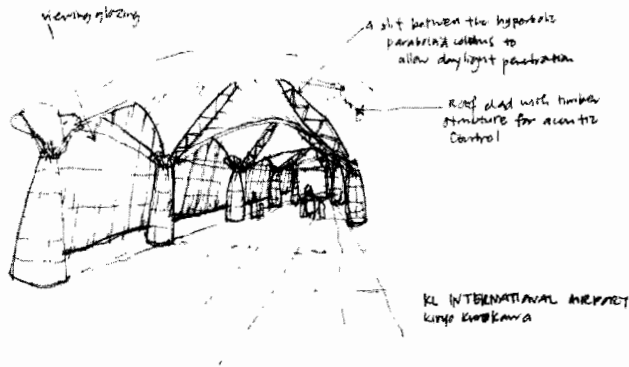 viewing glazing
a slit between the hyperbolic
parabolic columns to
allow daylight penetration
Roof clad with timber
structure for acoustic
control
KL INTERNATIONAL AIRPORT
Kisho Kurokawa